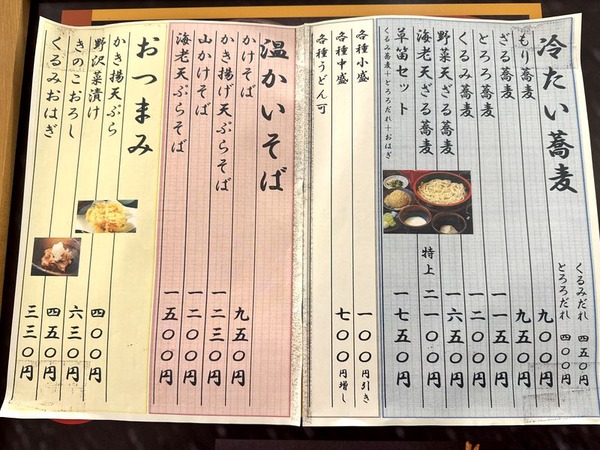 冷たい蕎麦
くるみだれ 四五〇円
とろろだれ 四〇〇円
もり蕎麦 九〇〇円
ざる蕎麦 九五〇円
とろろ蕎麦 一一五〇円
くるみ蕎麦 一二〇〇円
野菜天ざる蕎麦 一六五〇円
海老天ざる蕎麦 特上 二一〇〇円
草笛セット 一七五〇円
くるみ蕎麦+とろろだれ+おはぎ
各種小盛 一〇〇円引き
各種中盛 七〇〇円増し
各種うどん可
温かいそば
かけそば 九五〇円
かき揚げ天ぷらそば 一二三〇円
山かけそば 一二〇〇円
海老天ぷらそば 一五〇〇円
おつまみ
かき揚天ぷら 四〇〇円
野沢菜漬け 六三〇円
きのこおろし 四五〇円
くるみおはぎ 三三〇円